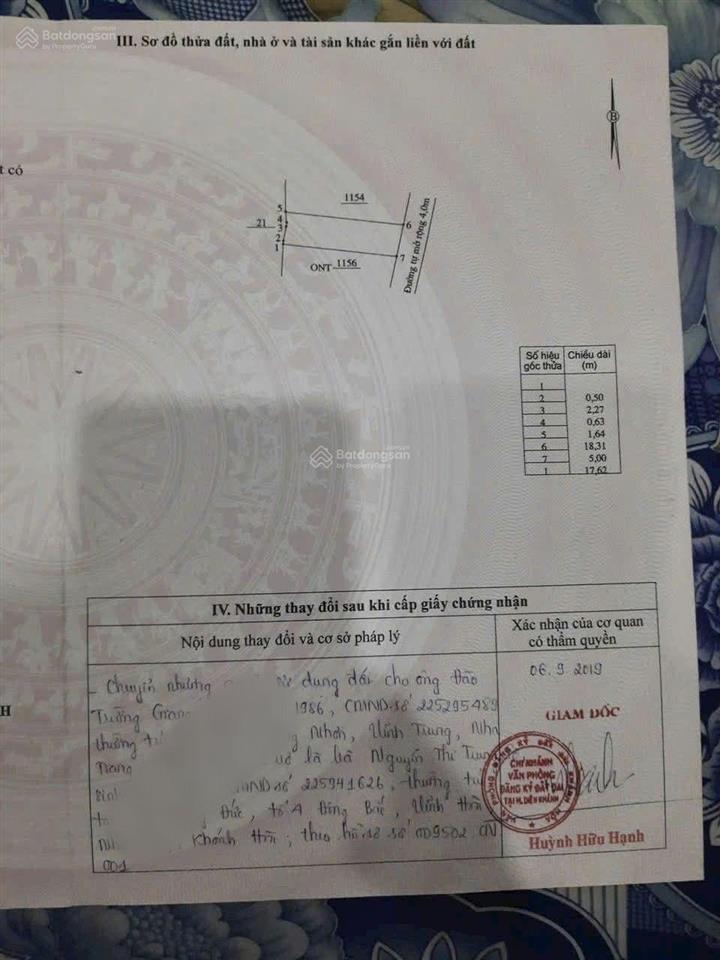 Batdongsan
by PropertyGuru
III. Sơ đồ thửa đất, nhà ở và tài sản khác gắn liền với đất
B
t có
1154
5
4
3
21
2
1
6
7
ONT 1156
Đường tự mở rộng 4,0m
Số hiệu góc thửa Chiều dài (m)
1
2 0,50
3 2,27
4 0,63
5 1,64
6 18,31
7 5,00
1 17,62
Batdongsan
by PropertyGuru
IV. Những thay đổi sau khi cấp giấy chứng nhận
Nội dung thay đổi và cơ sở pháp lý
Xác nhận của cơ quan
có thẩm quyền
- Chuyển nhượng dụng đất cho ông Đào
Tường 1986, CMND số 225295489
thường Nhơn, Vĩnh Trung, Nha
Trang là bà Nguyễn Thị
CMND số 225941626, thường
Đức, tổ 4 Đông
Khánh Hòa; theo hồ sơ số 009502
001
06.9.2019
GIÁM ĐỐC
CHI NHÁNH
VĂN PHÒNG
ĐĂNG KÝ ĐẤT ĐAI
TẠI H. DIÊN KHÁNH
Huỳnh Hữu Hạnh
H